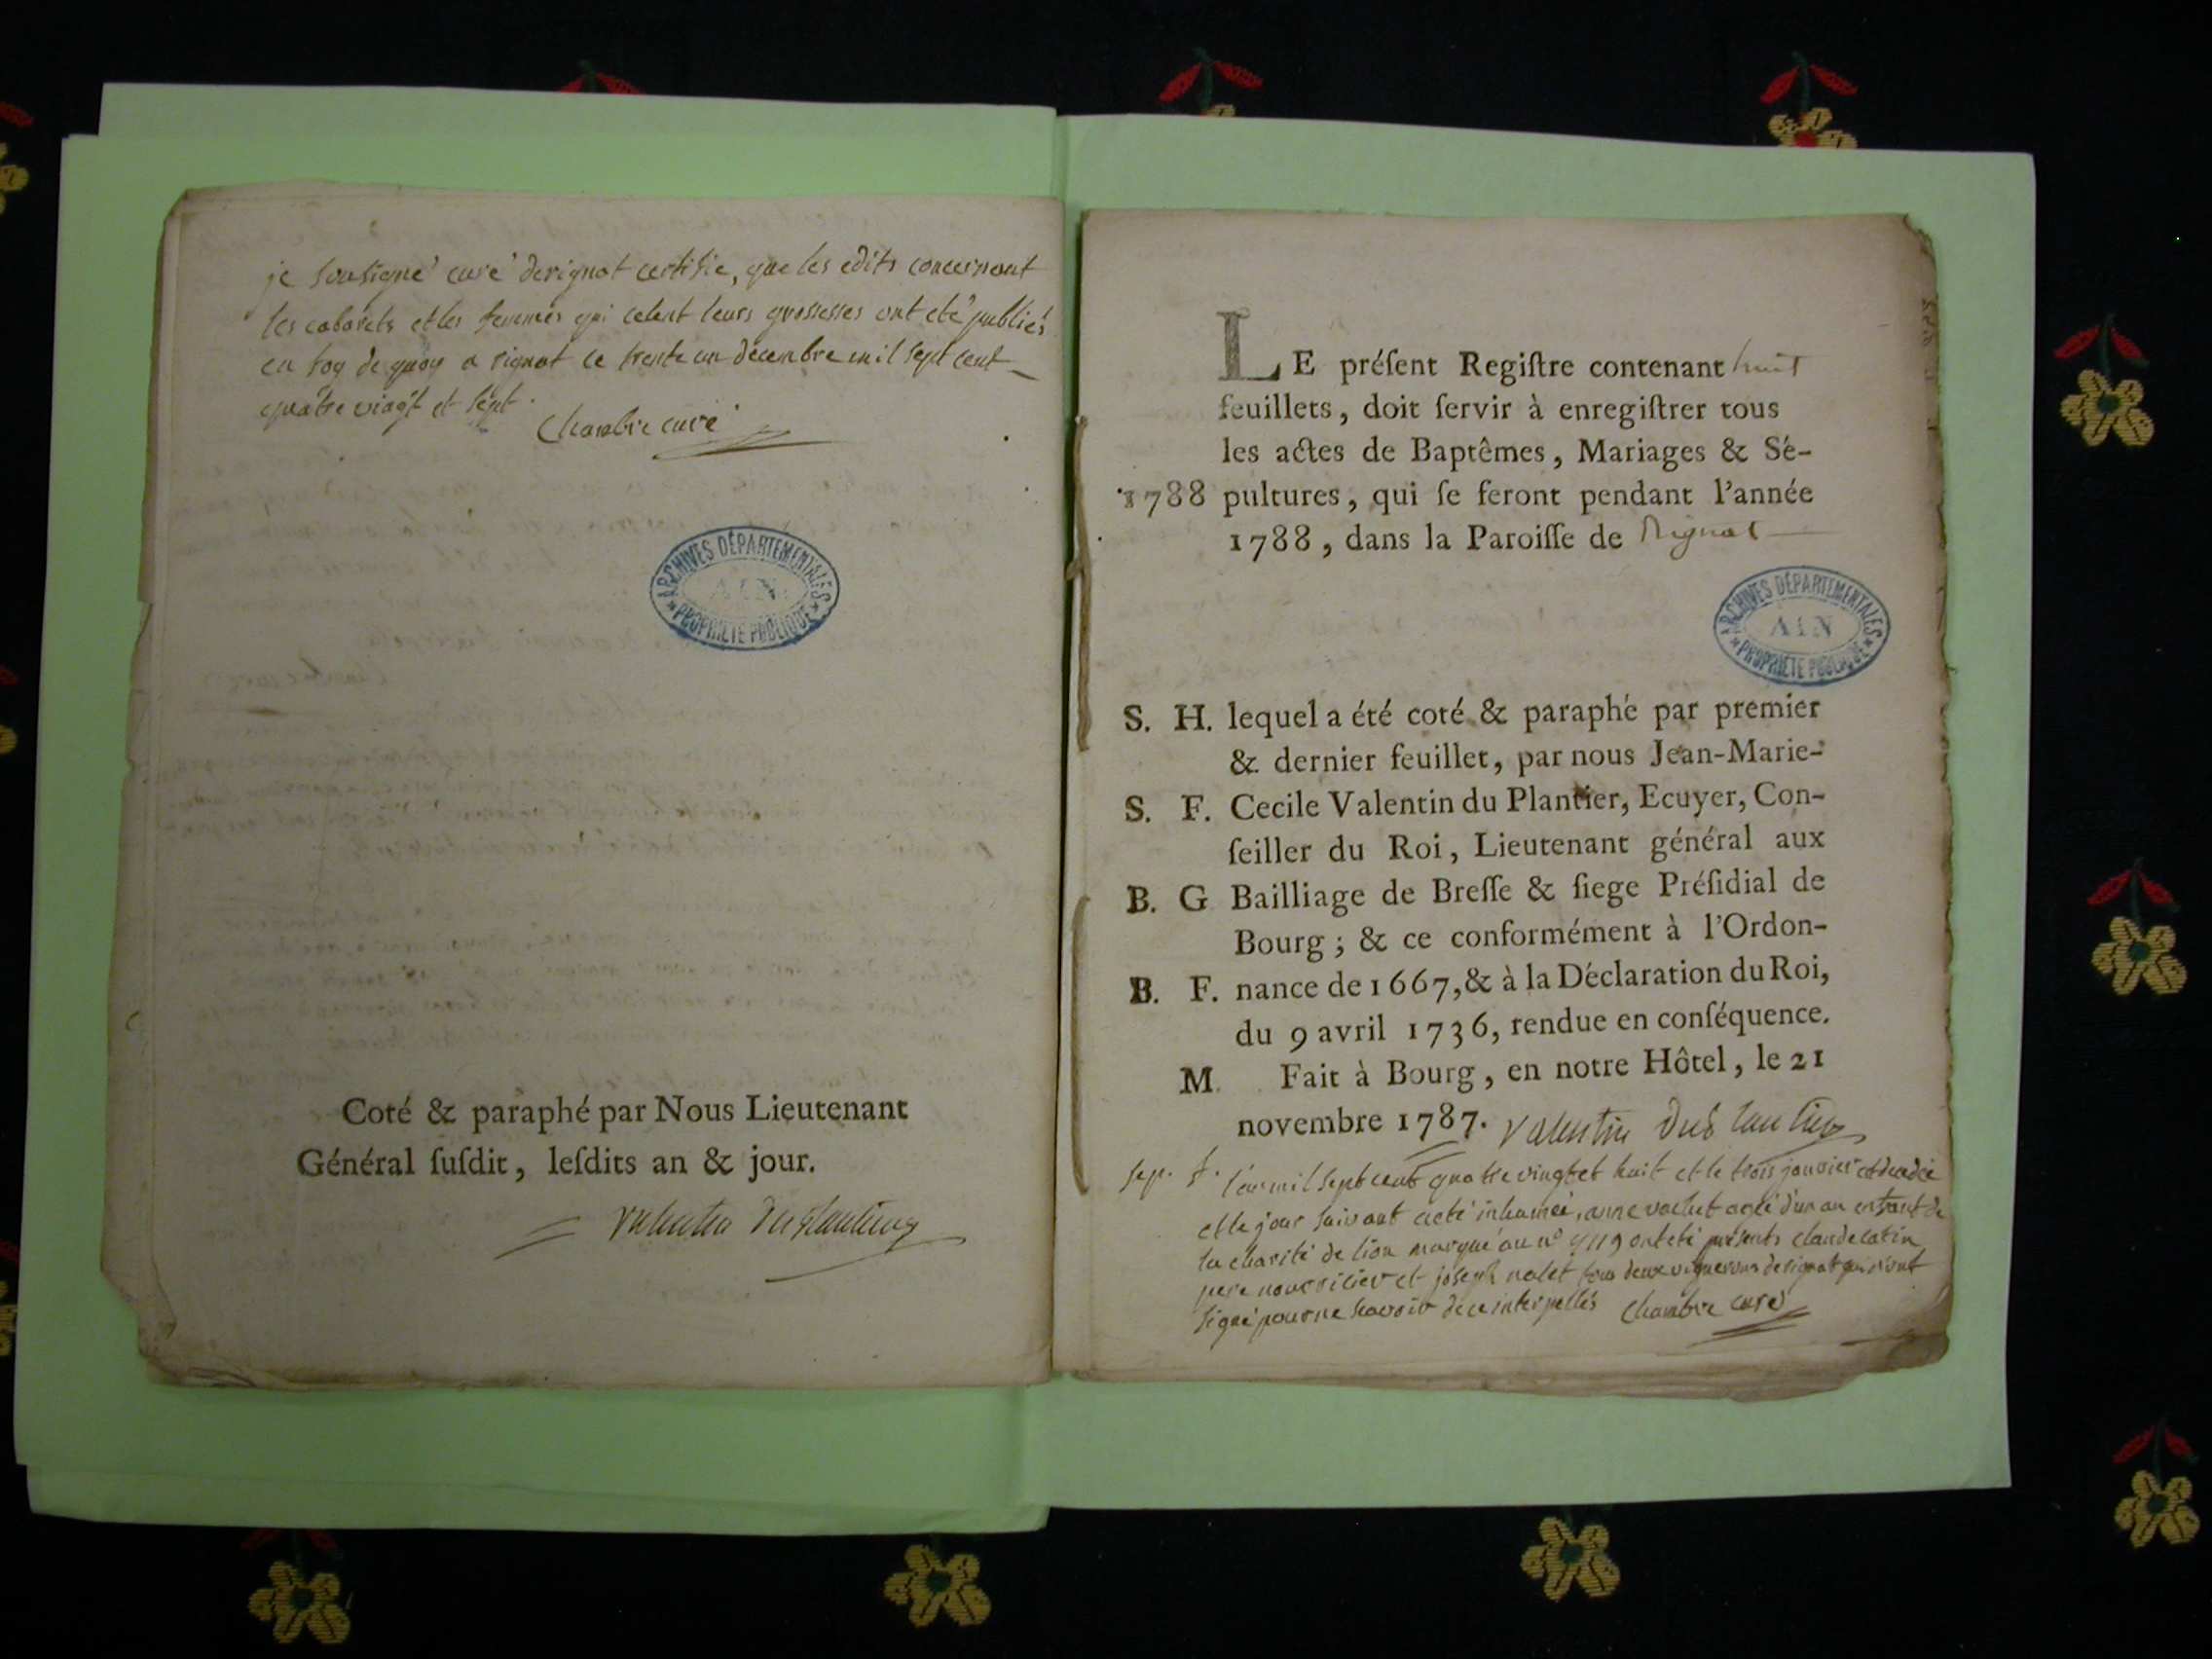 je soussigné curé de rignat certifie, que les edits concernant
les cabarets et les femmes qui celent leurs grossesses ont eté publiés
en foy de quoy a rignat ce trente un decembre mil sept cent
quatre vingt et sept.
Chambre curé
ARCHIVES DÉPARTEMENTALES
AIN
PROPRIÉTÉ PUBLIQUE
Coté & paraphé par Nous Lieutenant
Général ſuſdit, leſdits an & jour.
Valentin Duplantier
LE préſent Regiſtre contenant huit
feuillets, doit ſervir à enregiſtrer tous
les actes de Baptêmes, Mariages & Sé-
1788 pultures, qui ſe feront pendant l'année
1788, dans la Paroiſſe de Rignat
ARCHIVES DÉPARTEMENTALES
AIN
PROPRIÉTÉ PUBLIQUE
S. H. lequel a été coté & paraphé par premier
& dernier feuillet, par nous Jean-Marie-
S. F. Cecile Valentin du Plantier, Ecuyer, Con-
ſeiller du Roi, Lieutenant général aux
B. G Bailliage de Breſſe & ſiege Préſidial de
Bourg ; & ce conformément à l'Ordon-
B. F. nance de 1667, & à la Déclaration du Roi,
du 9 avril 1736, rendue en conſéquence.
M. Fait à Bourg, en notre Hôtel, le 21
novembre 1787. Valentin Duplantier
sep. f. l'an mil sept cent quatre vingt et huit et le trois janvier est decedée
et le jour suivant a eté inhumée, anne vachet agée d'un an enfant de
la charité de lion marqué au n° 4119 ont eté présents claude catin
pere nourricier et joseph nalet tous deux vignerons de rignat qui n'ont
signé pour ne scavoir de ce interpellés Chambre curé